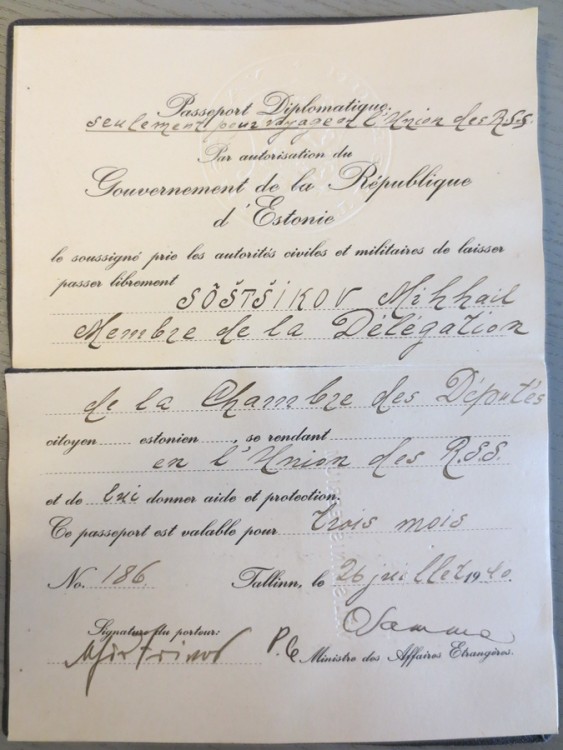 Passeport Diplomatique
seulement pour voyage en l'Union des R.S.S.
Par autorisation du
Gouvernement de la République
d'Estonie
le soussigné prie les autorités civiles et militaires de laisser
passer librement SÕŠTŠIKOV Mihhail
Membre de la Délégation
de la Chambre des Députés
citoyen estonien, se rendant
en l'Union des R.S.S.
et de lui donner aide et protection.
Ce passeport est valable pour trois mois
No. 186 Tallinn, le 26 juillet 1940.
Signature du porteur:
Ministre des Affaires Etrangères.